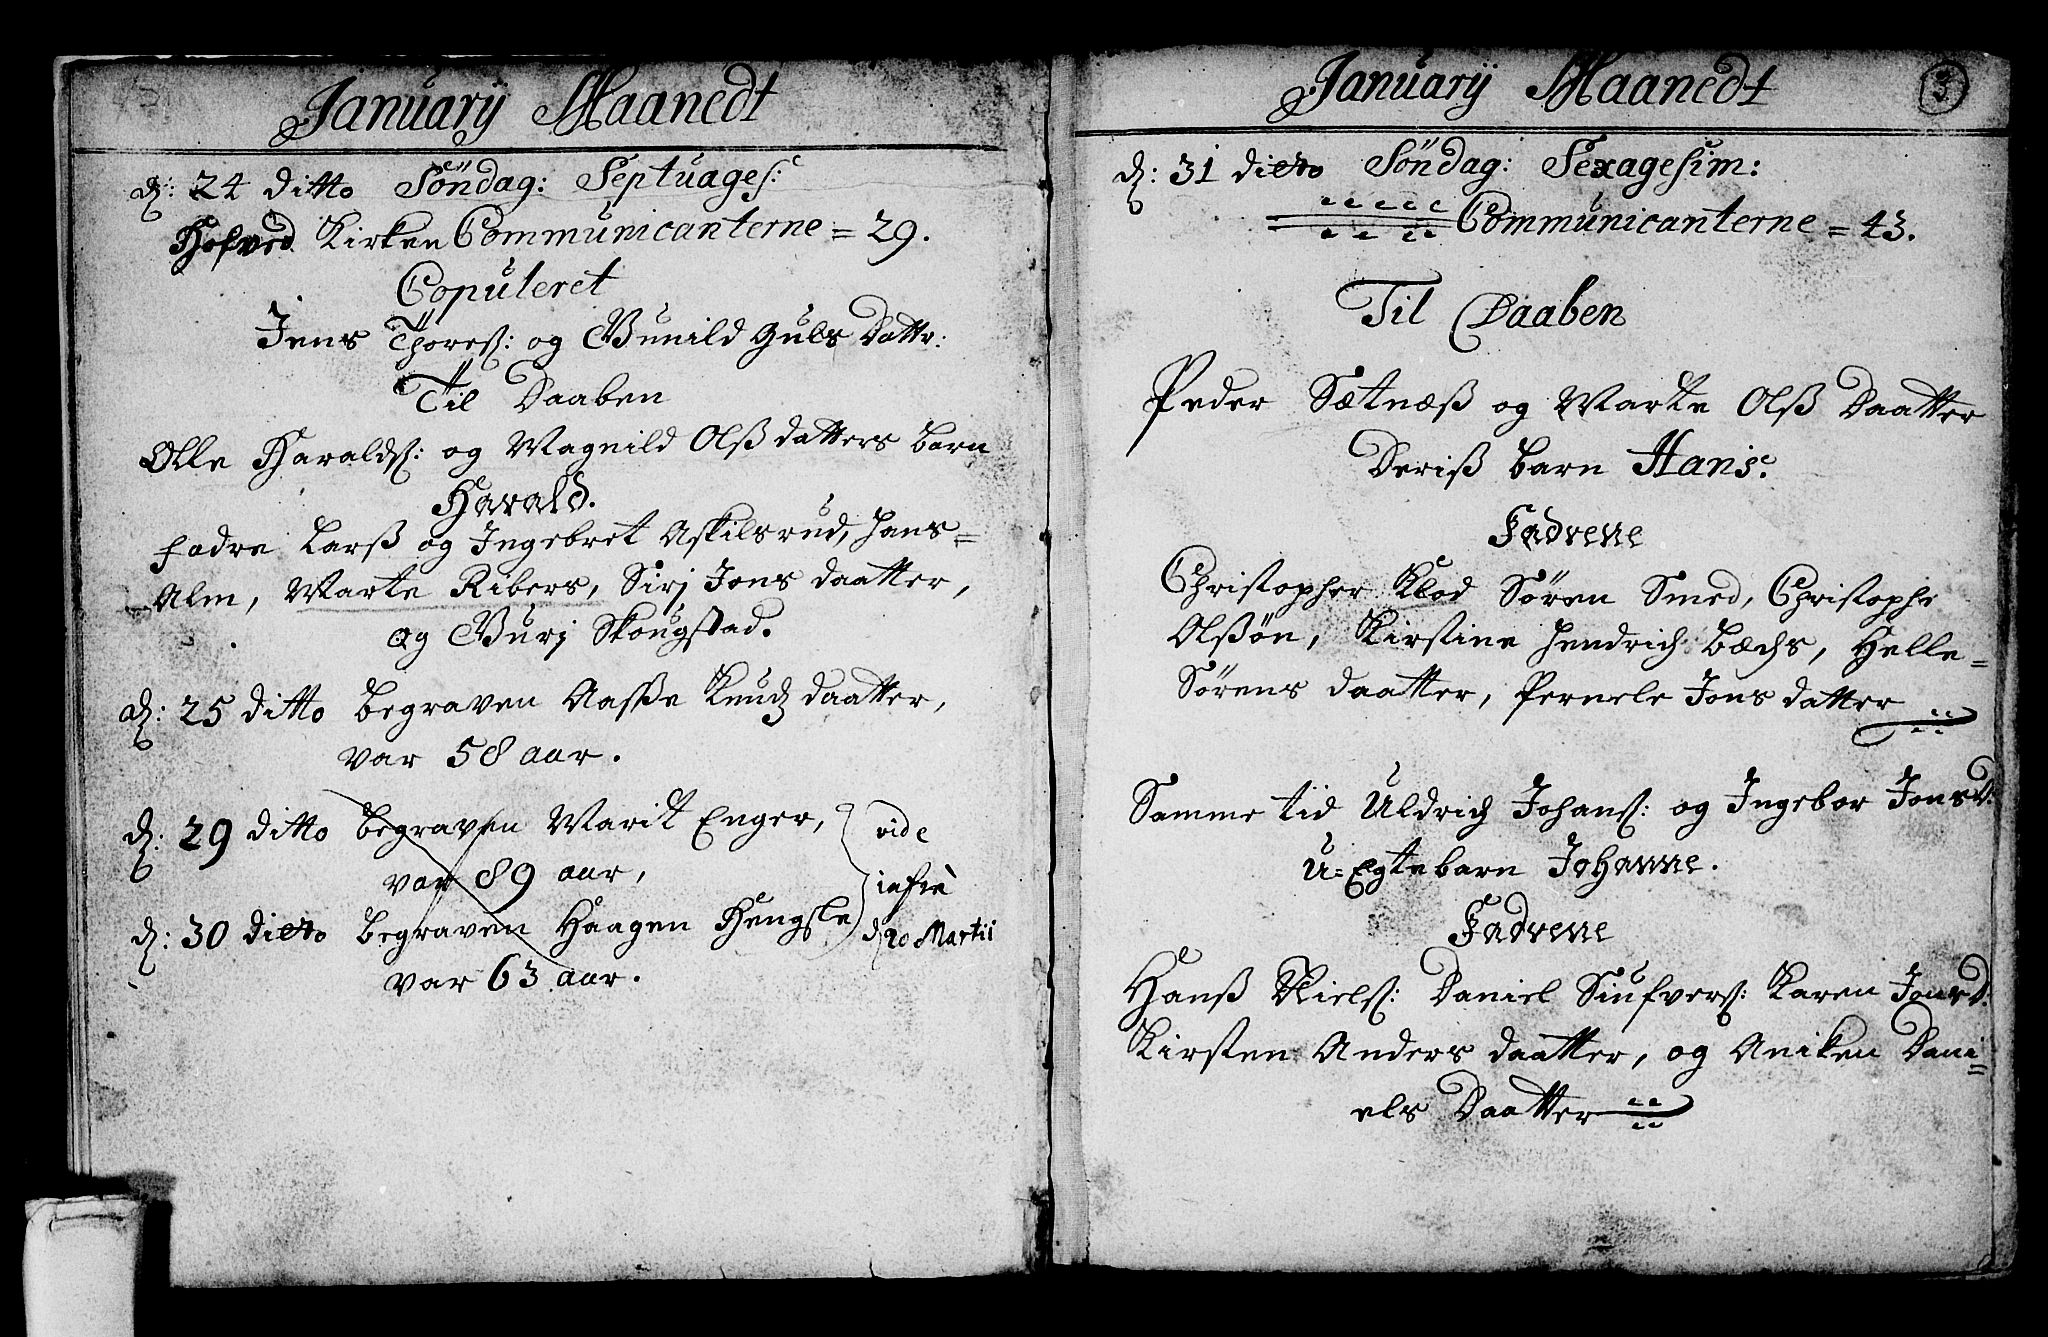 Januarij Maanedt
d: 24 ditto Söndag: Septuages:
Hofved Kirken Communicanterne = 29.
Copuleret
Jens Thores: og Gunild Guls Dattr:
Til Daaben
Olle Haralds: og Magnild Olß datters barn
Harald.
fadre Larß og Ingebret Askilsrud, Hans=
Alm, Marte Ribers, Sirj Jons daatter,
og Gurj Skougstad.
d: 25 ditto begraven Aasße Knudz daatter,
var 58 aar.
d: 29 ditto begraven Marit Enger,
var 89 aar,
d: 30 ditto begraven Haagen Hengsle
var 63 aar.
vide
infrè
d 20 Martii
Januarij Maanedt
3
d: 31 ditto Söndag: Sexagesim:
Communicanterne = 43.
Til Daaben
Peder Sætnæß og Marte Olß Daatter
Deriß barn Hans.
Fadrene
Christopher Klod Sören Smed, Christophr
Olßøn, Kirstine Hendrich Bæchs, Helle=
Sørens daatter, Pernele Jons datter
Samme tid Uldrich Johans: og Ingebor Jons D:
U=Egte barn Johanne.
Fadrene
Hanß Niels: Daniel Siufvers: Karen Jons D:
Kirsten Anders daatter, og Aniken Dani=
els Daatter